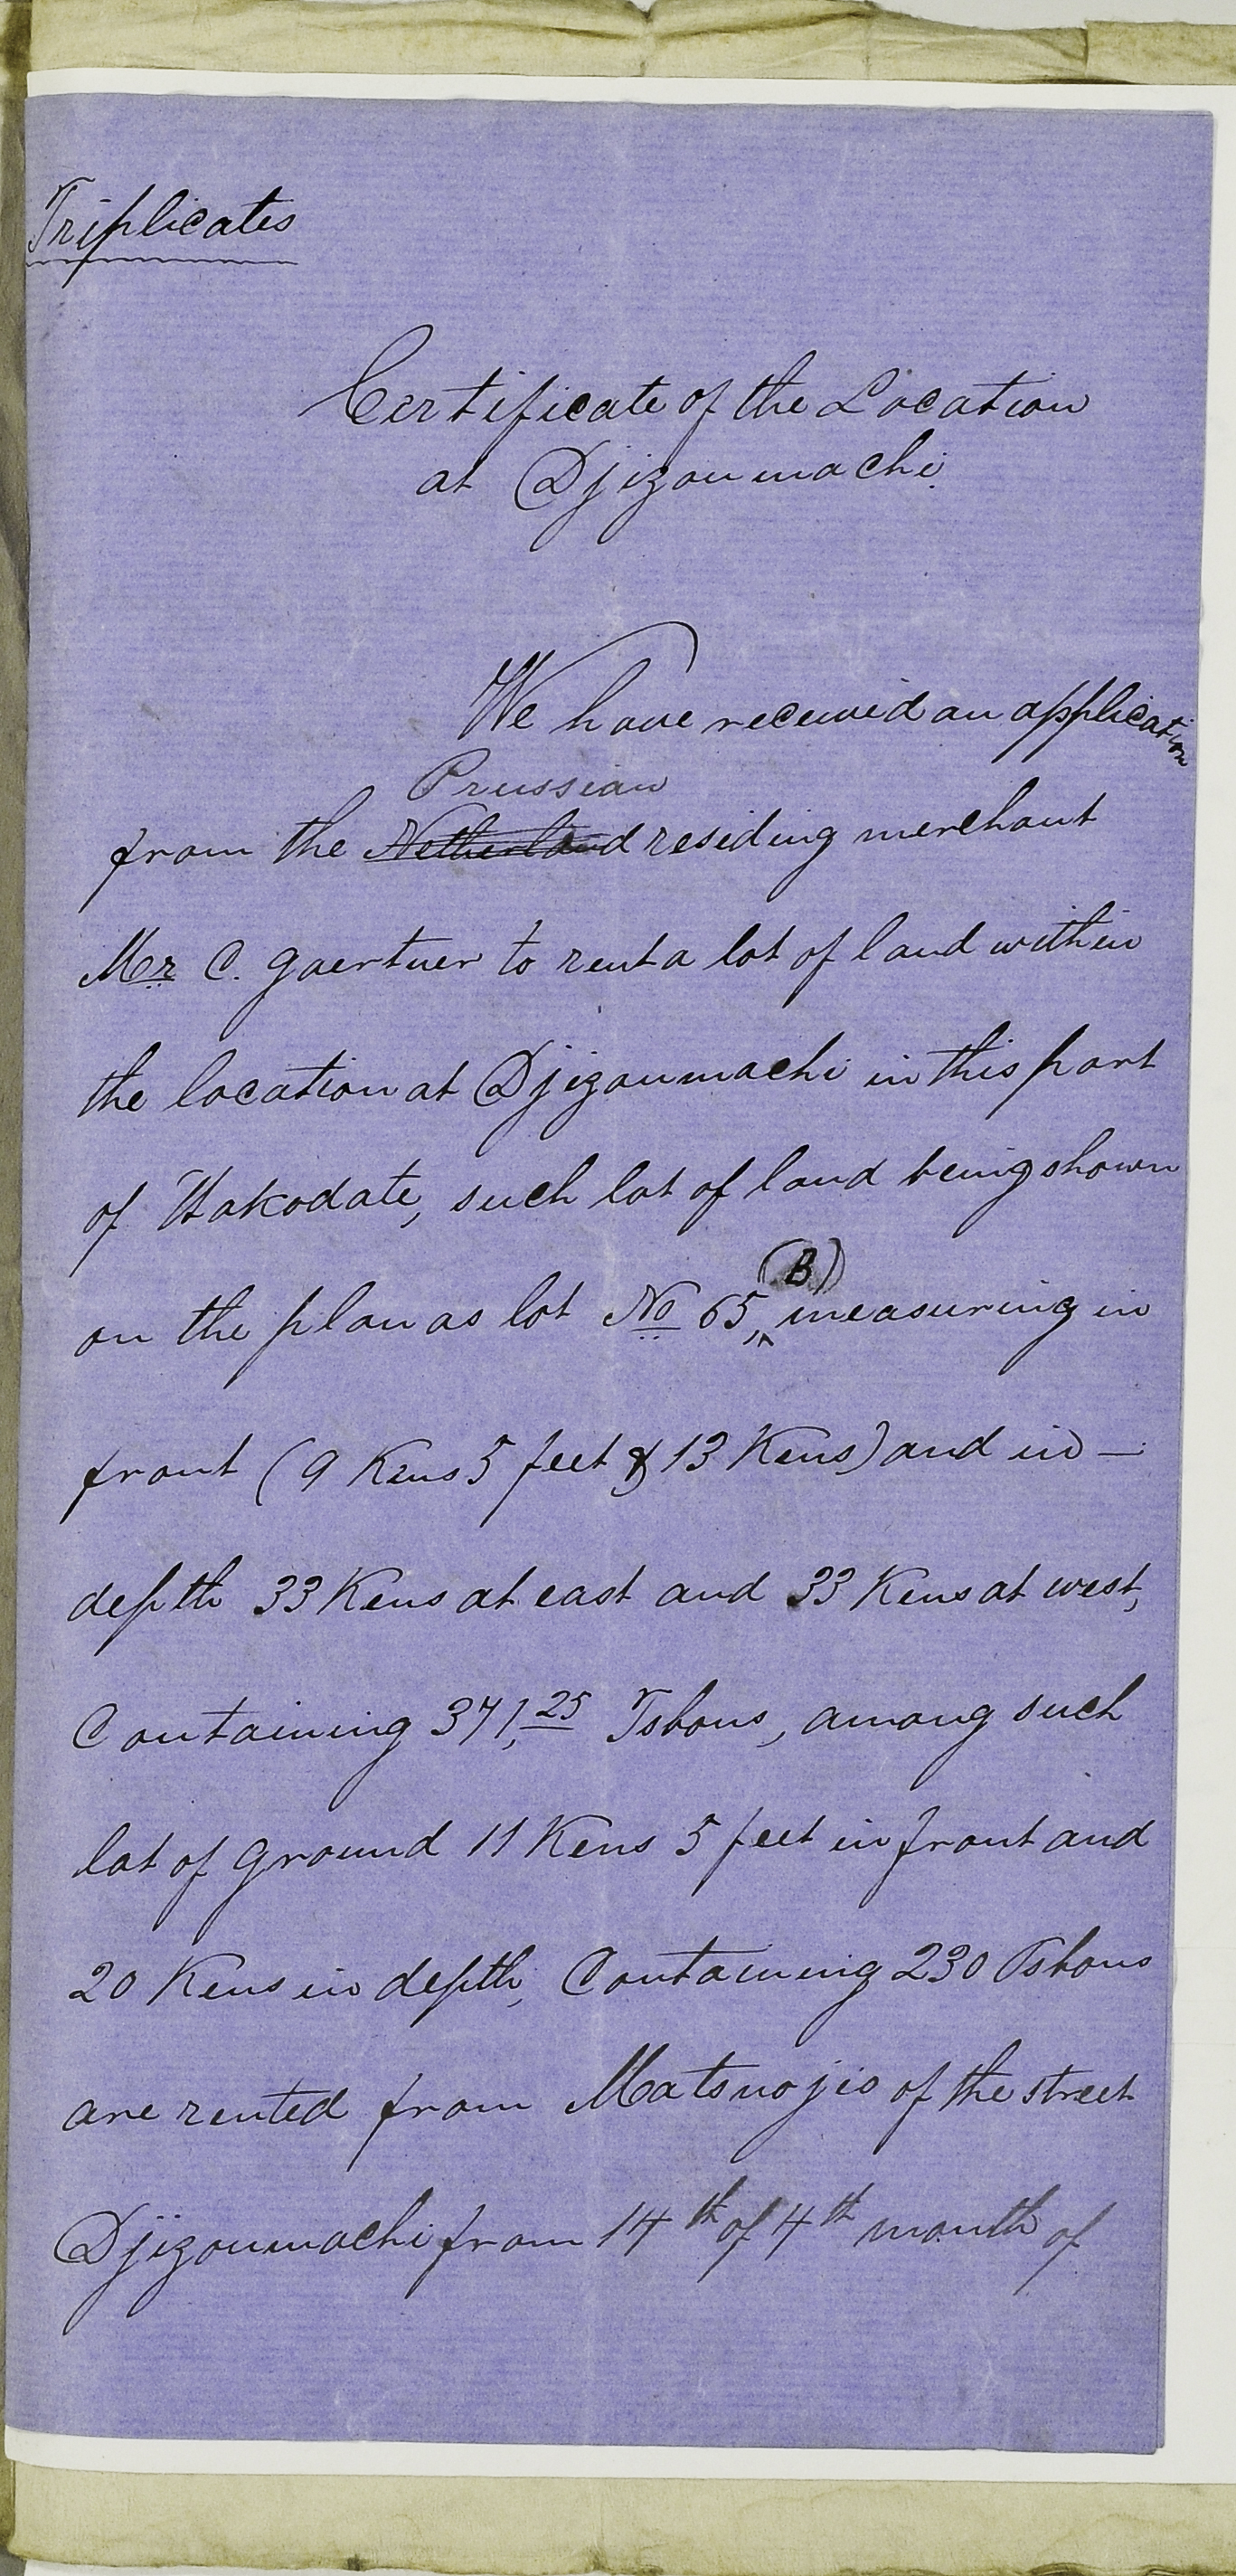 Triplicates
Certificate of the Location
at Djizoumachi.
We have received an application
Prussian
from the Netherland residing merchant
Mr C. Gaertner to rent a lot of land within
the location at Djizoumachi in this port
of Hakodate, such lot of land being shown
(B)
on the plan as lot No 65, measuring in
front (9 Kens 5 feet & 13 Kens) and in —
depth 33 Kens at east and 33 Kens at west,
Containing 371,25 Tsbous, among such
lot of ground 11 Kens 5 feet in front and
20 Kens in depth, Containing 230 Tsbous
are rented from Matsnojio of the street
Djizoumachi from 14th of 4th month of